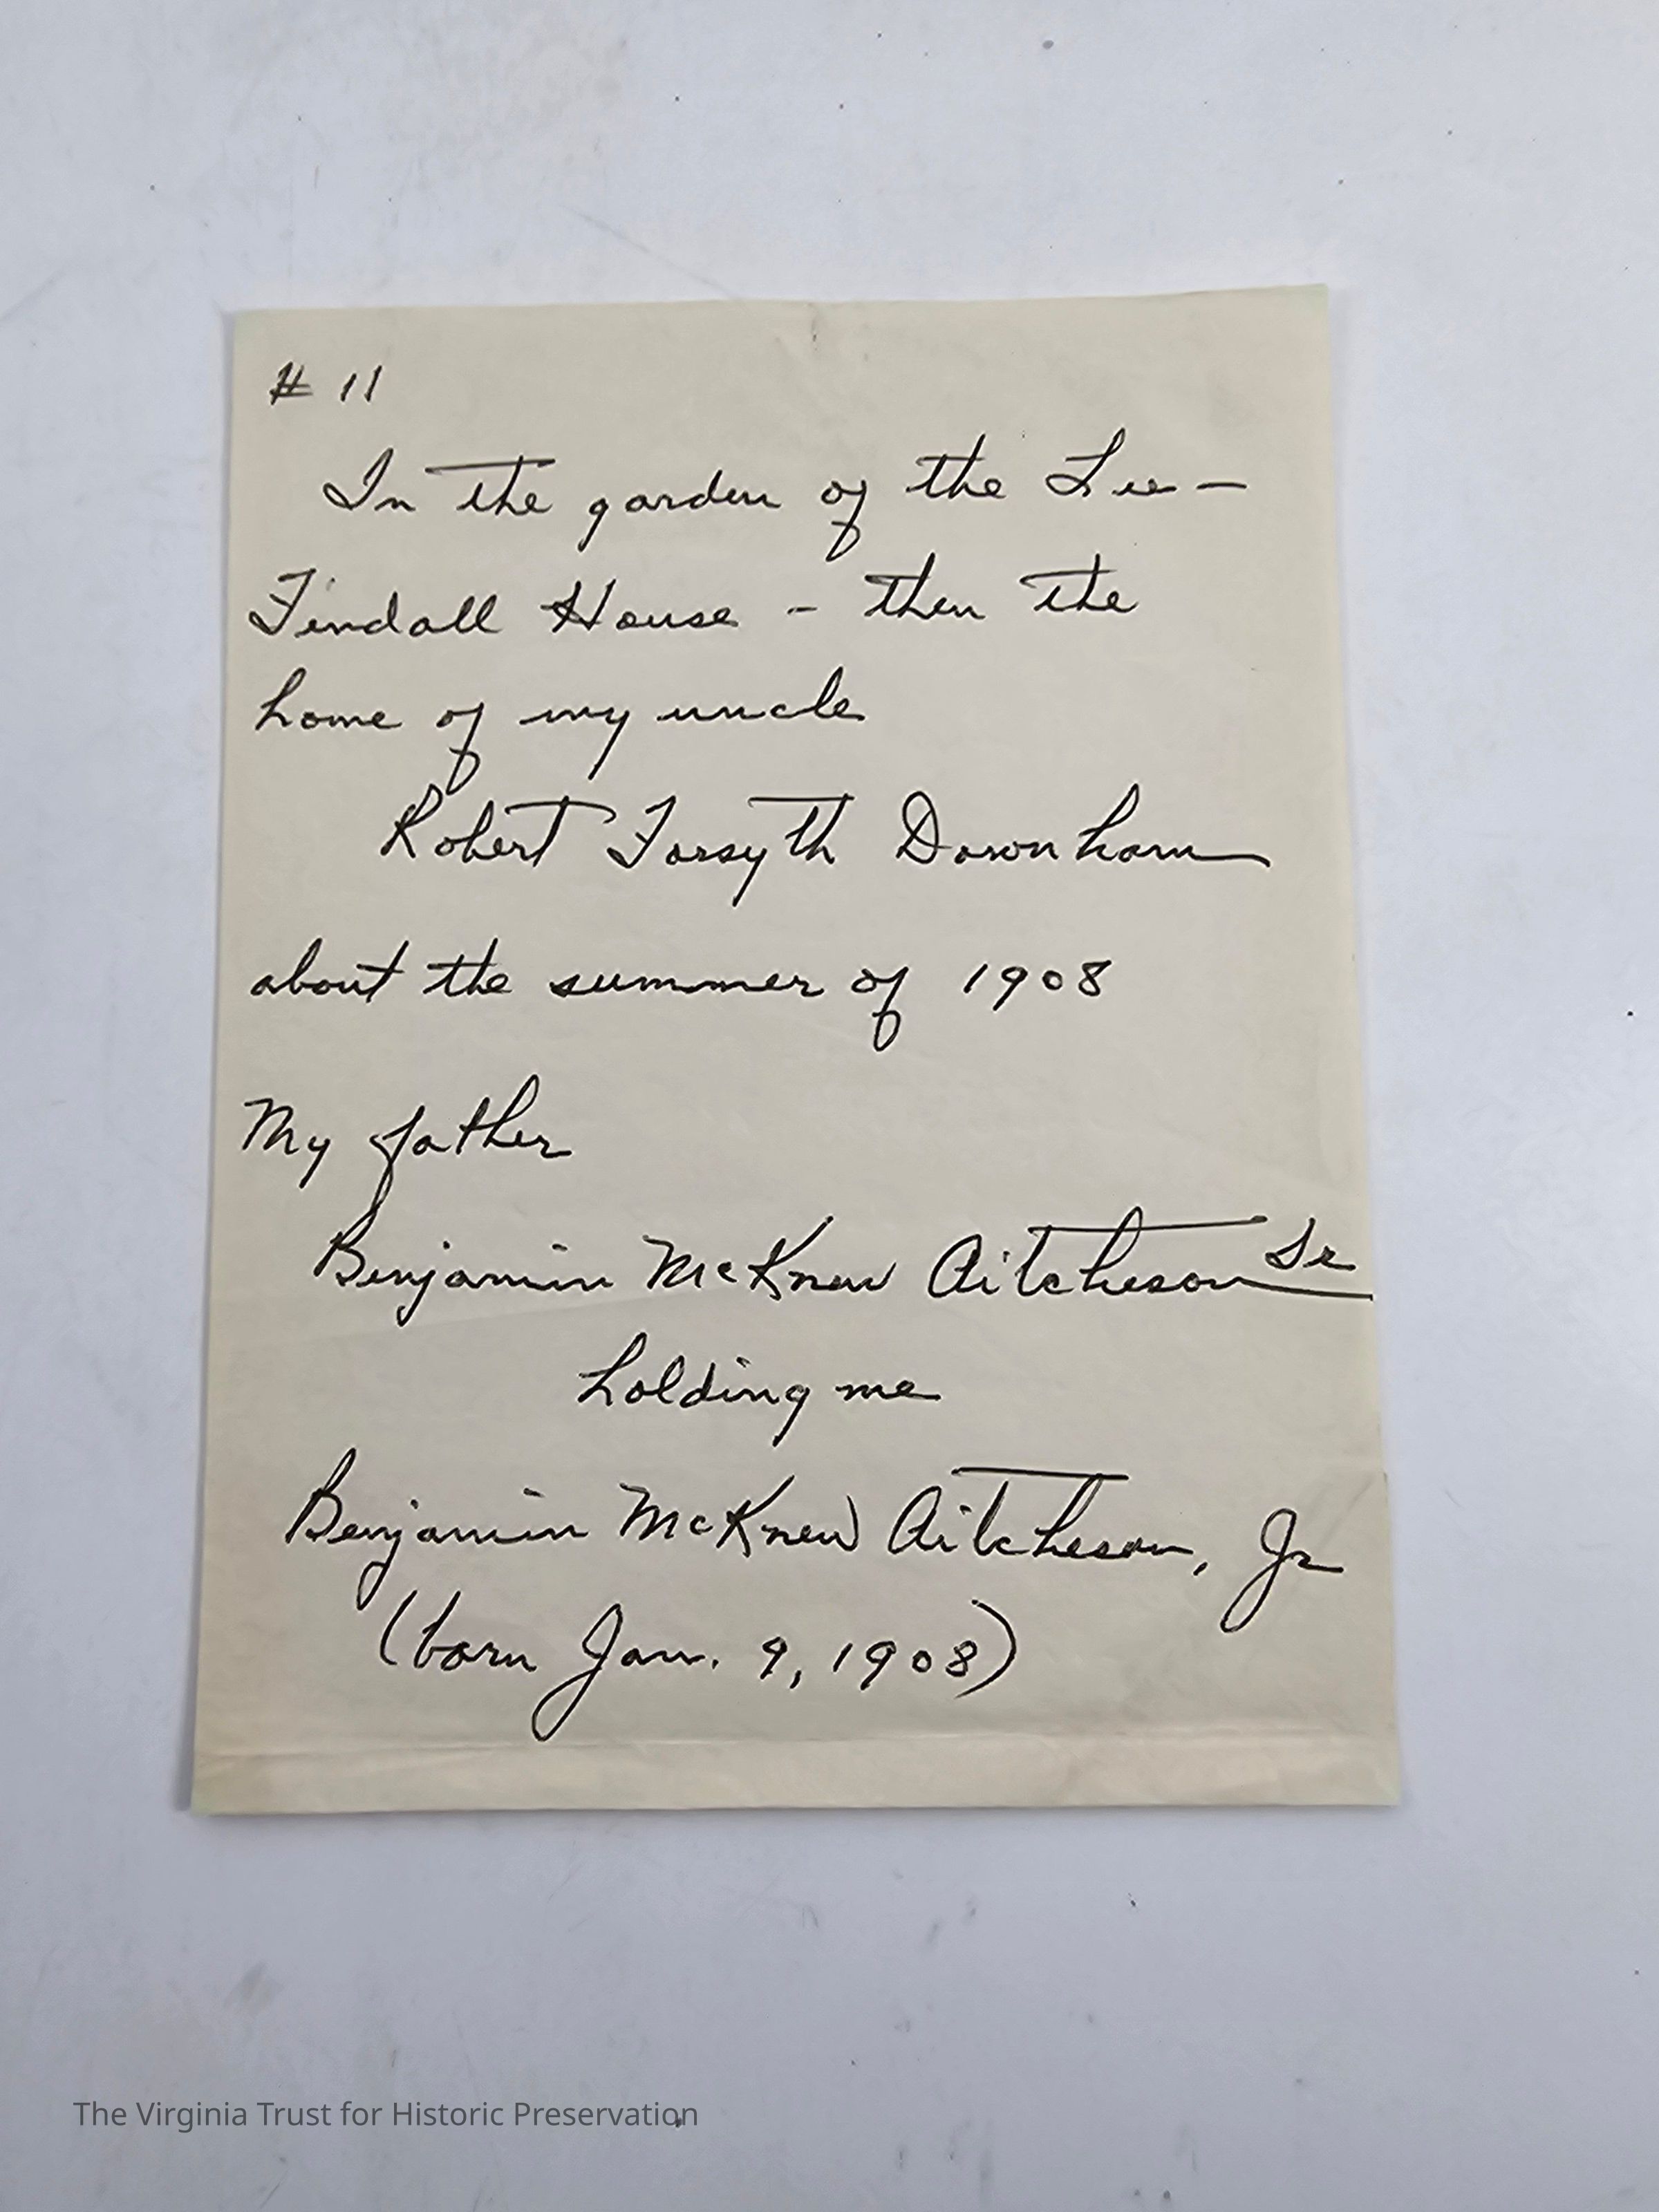 # 11
In the garden of the Lee-
Fendall House - then the
home of my uncle
Robert Forsyth Downham
about the summer of 1908
My father
Benjamin McKnew Aitcheson Sr
holding me
Benjamin McKnew Aitcheson, Jr
(born Jan. 9, 1908)
The Virginia Trust for Historic Preservation